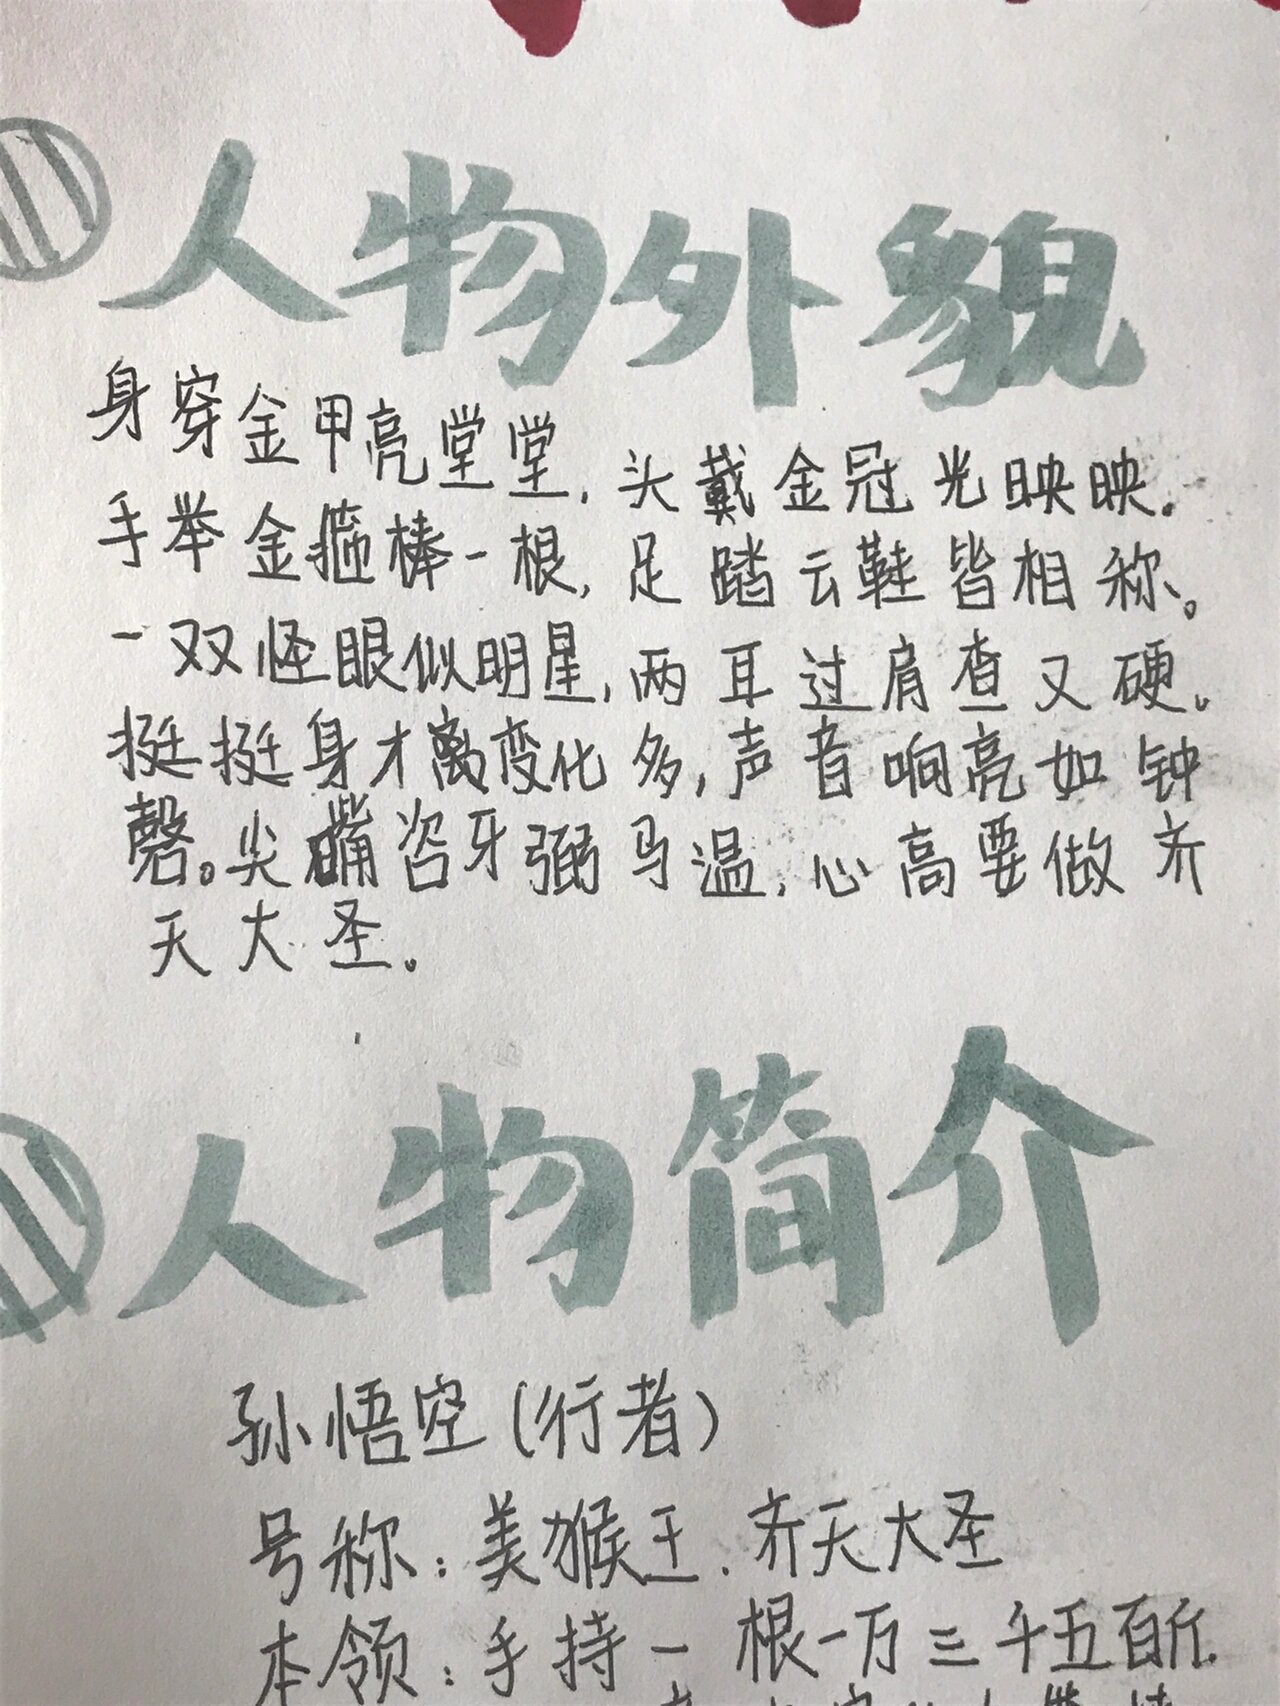 人物外貌
身穿金甲亮堂堂,头戴金冠光映映。
手举金箍棒一根,足踏云鞋皆相称。
一双怪眼似明星,两耳过肩查又硬。
挺挺身才离变化多,声音响亮如钟
磬。尖嘴咨牙弼马温,心高要做齐
天大圣。
人物简介
孙悟空(行者)
号称:美猴王、齐天大圣
本领:手持一根一万三千五百斤